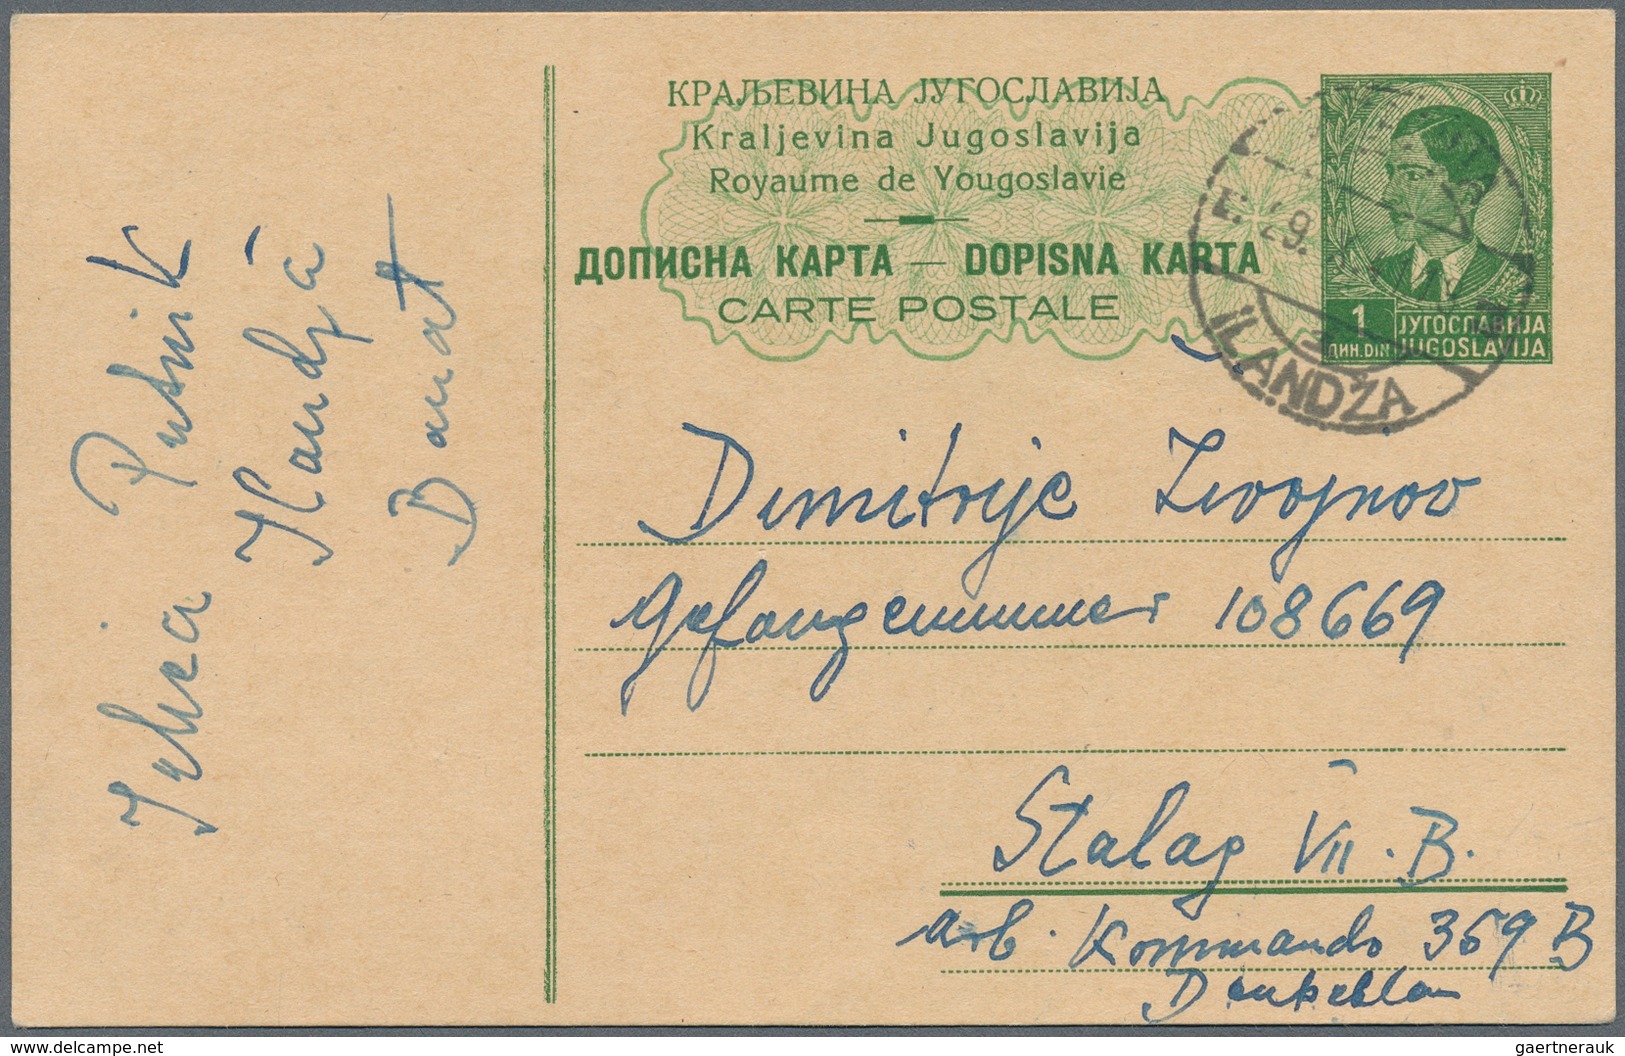 КРАЉЕВИНА ЈУГОСЛАВИЈА
Kraljevina Jugoslavija
Royaume de Yougoslavie
ДОПИСНА КАРТА — DOPISNA KARTA
CARTE POSTALE
1
ДИН. DIN
ЈУГОСЛАВИЈА
JUGOSLAVIJA
29.
ILANDŽA
Putnik
Ilandža
Banat
Dimitrije Živojnov
Gefangennummer 108669
Stalag VII. B.
arb. Kommando 369 B
delcampe.net
gaertnerauk